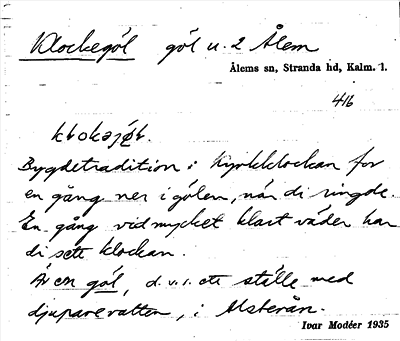 Klockegöl göl n. 2 Ålem
Ålems sn, Stranda hd, Kalm. l.
416
Bygdetradition: Kyrkklockan for
en gång ner i gölen, när di ringde.
En gång vid mycket klart väder har
di sett klockan.
Är en göl, d.v.s. ett ställe med
djupare vatten, i Alsterån.
Ivar Modéer 1935